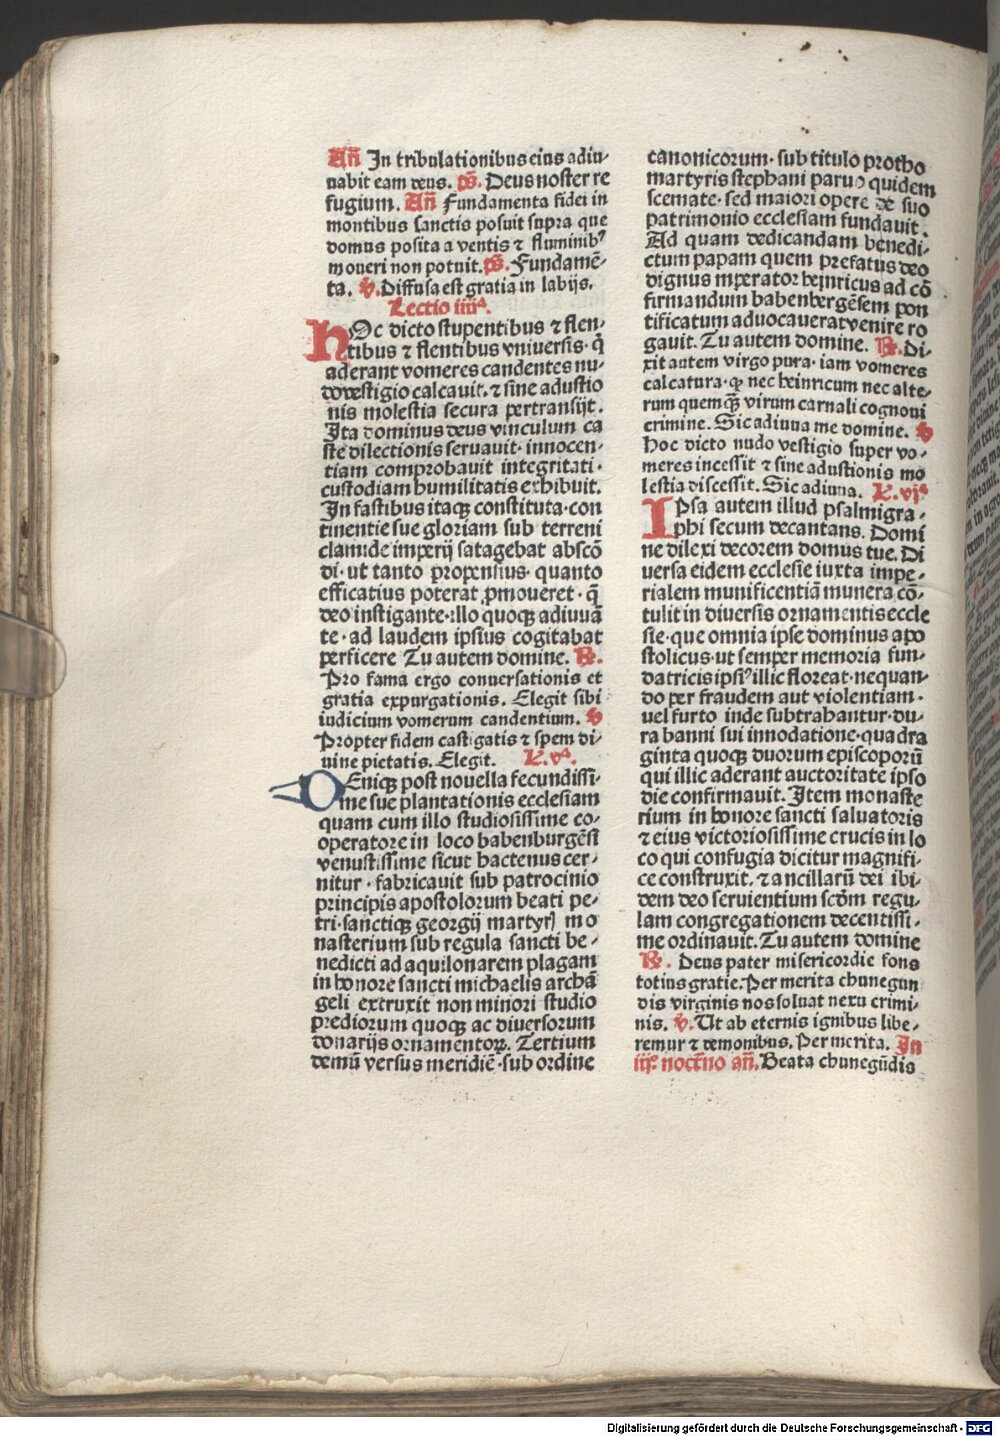 Añ In tribulationibus eius adiu-
uabit eam deus. p̃s. Deus noster re
fugium. Añ Fundamenta fidei in
montibus sanctis posuit supra que
domus posita a ventis ⁊ fluminibꝰ
moueri non potuit. p̃s. Fundamẽ-
ta. ṽ. Diffusa est gratia in labijs.
Lectio iiijᵃ.
HOc dicto stupentibus ⁊ flen-
tibus ⁊ flentibus vniuersis· q̃
aderant vomeres candentes nu-
do vestigio calcauit. ⁊ sine adustio
nis molestia secura pertransijt.
Ita dominus deus vinculum ca
ste dilectionis seruauit· innocen-
tiam comprobauit integritati·
custodiam humilitatis exhibuit.
In fastibus itaqꝫ constituta· con
tinentie sue gloriam sub terreni
clamide imperij satagebat abscõ
di· ut tanto propensius· quanto
efficatius poterat ꝓmoueret· q̃
deo instigante· illo quoqꝫ adiuuã
te· ad laudem ipsius cogitabat
perficere Tu autem domine. ℞.
Pro fama ergo conuersationis et
gratia expurgationis. Elegit sibi
iudicium vomerum candentium. ṽ
Propter fidem castigatis ⁊ spem di-
uine pietatis. Elegit. L. vᵃ.
DEniqꝫ post nouella fecundissi-
me sue plantationis ecclesiam
quam cum illo studiosissime co-
operatore in loco babenburgẽsi
venustissime sicut hactenus cer-
nitur· fabricauit sub patrocinio
principis apostolorum beati pe-
tri· sanctiqꝫ georgij martyrꝭ mo
nasterium sub regula sancti be-
nedicti ad aquilonarem plagam
in honore sancti michaelis archã
geli extruxit non minori studio
prediorum quoqꝫ ac diuersorum
donarijs ornamentoꝝ. Tertium
demũ versus meridiẽ· sub ordine
canonicorum· sub titulo protho
martyris stephani paruo quidem
scemate· sed maiori opere de suo
patrimonio ecclesiam fundauit.
Ad quam dedicandam benedi-
ctum papam quem prefatus deo
dignus imperator heinricus ad cõ
firmandum babenbergẽsem pon
tificatum aduocauerat venire ro
gauit. Tu autem domine. ℞. Di-
xit autem virgo pura· iam vomeres
calcatura· ꝙ nec heinricum nec alte-
rum quemqꝫ̃ virum carnali cognoui
crimine. Sic adiuua me domine. ṽ
Hoc dicto nudo vestigio super vo-
meres incessit ⁊ sine adustionis mo
lestia discessit. Sic adiuua. L. vjᵃ
IPsa autem illud psalmigra-
phi secum decantans. Domi
ne dilexi decorem domus tue. Di
uersa eidem ecclesie iuxta impe-
rialem munificentiã munera cõ-
tulit in diuersis ornamentis eccle
sie· que omnia ipse dominus apo
stolicus· ut semper memoria fun-
datricis ipsiꝰ illic floreat· nequan-
do per fraudem aut violentiam·
uel furto inde subtrahantur· du-
ra banni sui innodatione· quadra
ginta quoqꝫ duorum episcoporũ
qui illic aderant auctoritate ipso
die confirmauit. Item monaste
rium in honore sancti saluatoris
⁊ eius victoriosissime crucis in lo
co qui confugia dicitur magnifi-
ce construxit. ⁊ ancillarũ dei ibi-
dem deo seruientium scd̃m regu-
lam congregationem decentissi-
me ordinauit. Tu autem domine
℞. Deus pater misericordie fons
totius gratie. Per merita chunegun
dis virginis nos soluat nexu crimi-
nis. ṽ. Ut ab eternis ignibus libe-
remur ⁊ demonibus. Per merita. In
iijº. nocturno añ. Beata chunegũdis
Digitalisierung gefördert durch die Deutsche Forschungsgemeinschaft - DFG